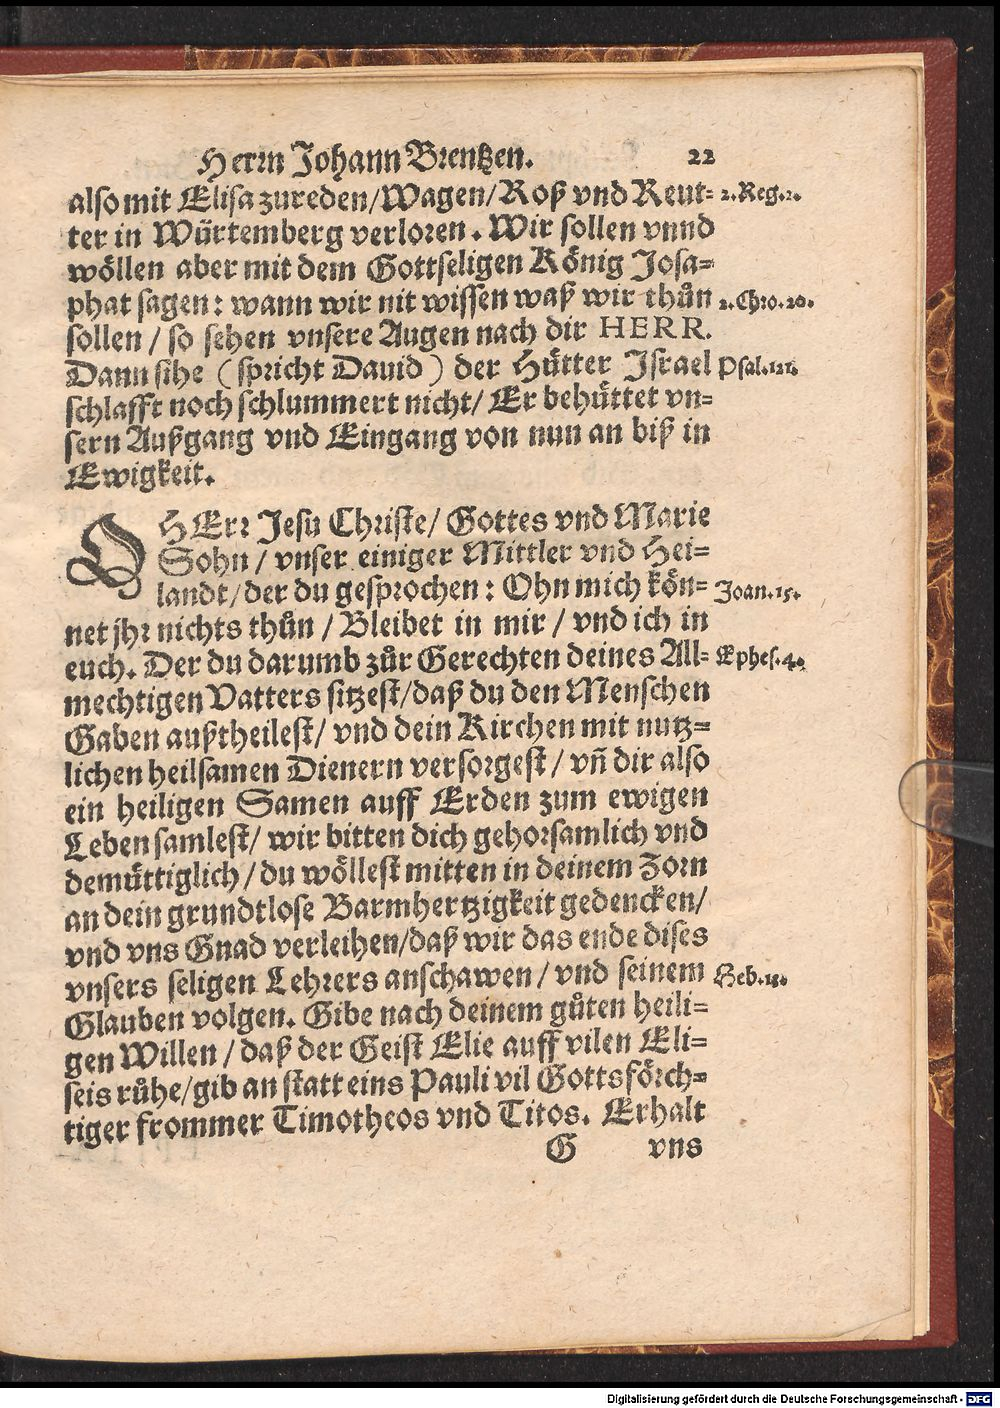 Herrn Johann Brentzen. 22
also mit Elisa zureden/Wagen/Roß vnd Reut= 2.Reg.2.
ter in Würtemberg verloren. Wir sollen vnnd
wöllen aber mit dem Gottseligen König Josa=
phat sagen: wann wir nit wissen waß wir thůn 2.Chro.20.
sollen / so sehen vnsere Augen nach dir HERR.
Dann sihe (spricht Dauid) der Hütter Israel Psal.121.
schlafft noch schlummert nicht/ Er behüttet vn=
sern Außgang vnd Eingang von nun an biß in
Ewigkeit.
O HErr Jesu Christe/ Gottes vnd Marie
Sohn / vnser einiger Mittler vnd Hei=
landt/der du gesprochen: Ohn mich kön= Joan.15.
net jhr nichts thůn / Bleibet in mir / vnd ich in
euch. Der du darumb zůr Gerechten deines All= Ephes.4.
mechtigen Vatters sitzest/daß du den Menschen
Gaben außtheilest/ vnd dein Kirchen mit nutz=
lichen heilsamen Dienern versorgest / vñ dir also
ein heiligen Samen auff Erden zum ewigen
Leben samlest/ wir bitten dich gehorsamlich vnd
demüttiglich/du wöllest mitten in deinem Zorn
an dein grundtlose Barmhertzigkeit gedencken/
vnd vns Gnad verleihen/daß wir das ende dises
vnsers seligen Lehrers anschawen / vnd seinem Heb.13.
Glauben volgen. Gibe nach deinem gůten heili=
gen Willen / daß der Geist Elie auff vilen Eli=
seis růhe/gib an statt eins Pauli vil Gottsförch=
tiger frommer Timotheos vnd Titos. Erhalt
G vns
Digitalisierung gefördert durch die Deutsche Forschungsgemeinschaft - DFG